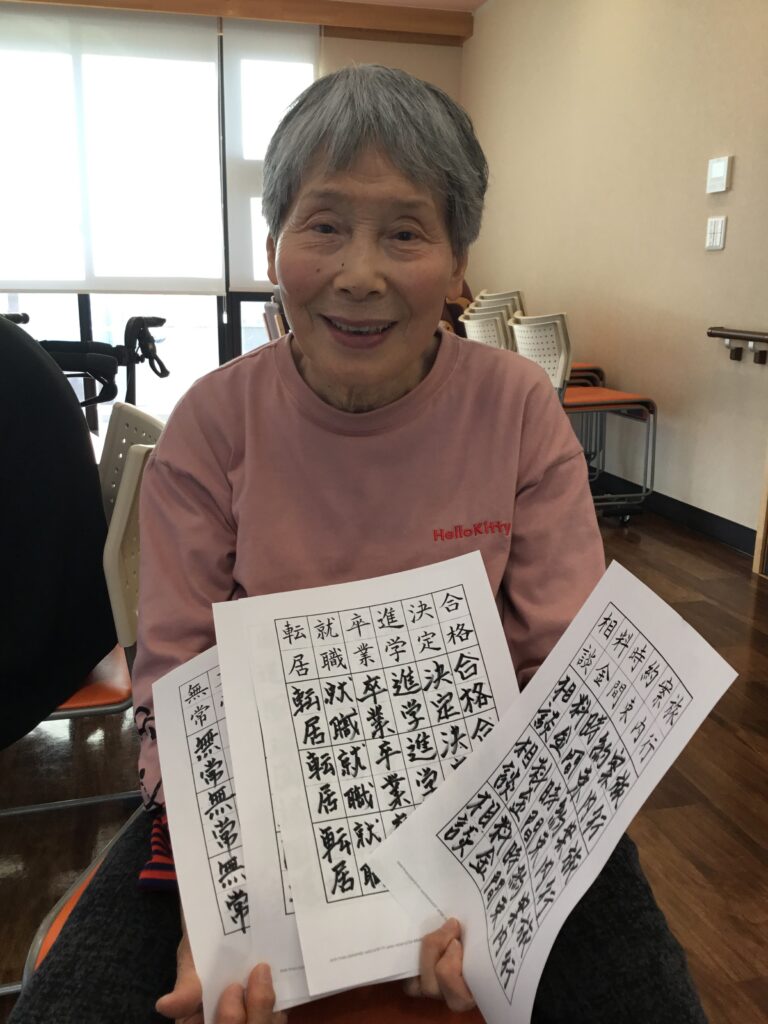 HelloKitty
無常無常無常無常
合格合格
決定決定決
進学進学進学
卒業卒業卒業
就職就職就職就職
転居転居転居転居
旅行旅行旅行旅行
案内案内案内案内
約束約束約束約束
時間時間時間時間
料金料金料金料金
相談相談相談相談